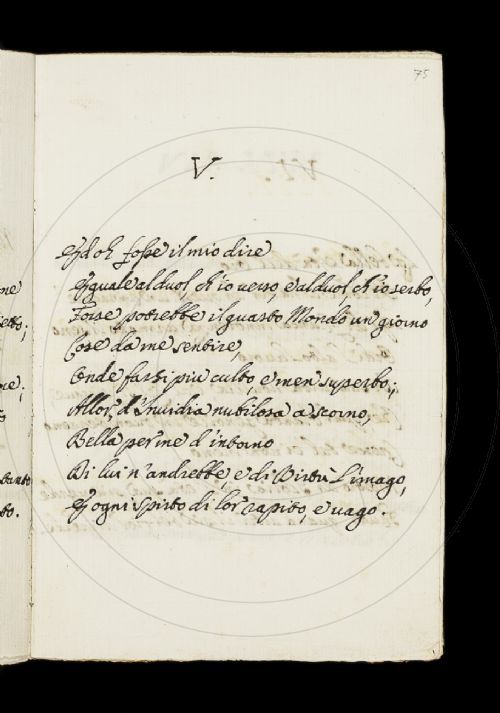 75
V.
Ed oh fosse il mio dire
Eguale al duol, ch'io verso, e al duol, ch'io serbo,
Forse potrebbe il guasto Mondo un giorno
Cose da me sentire,
Onde farsi piu culto, e men superbo;
Allor d'Invidia nubilosa a scorno,
Bella per me d'intorno
Di lui n'andrebbe, e di Virtù l'imago,
E ogni spirto di lor rapito, e vago.